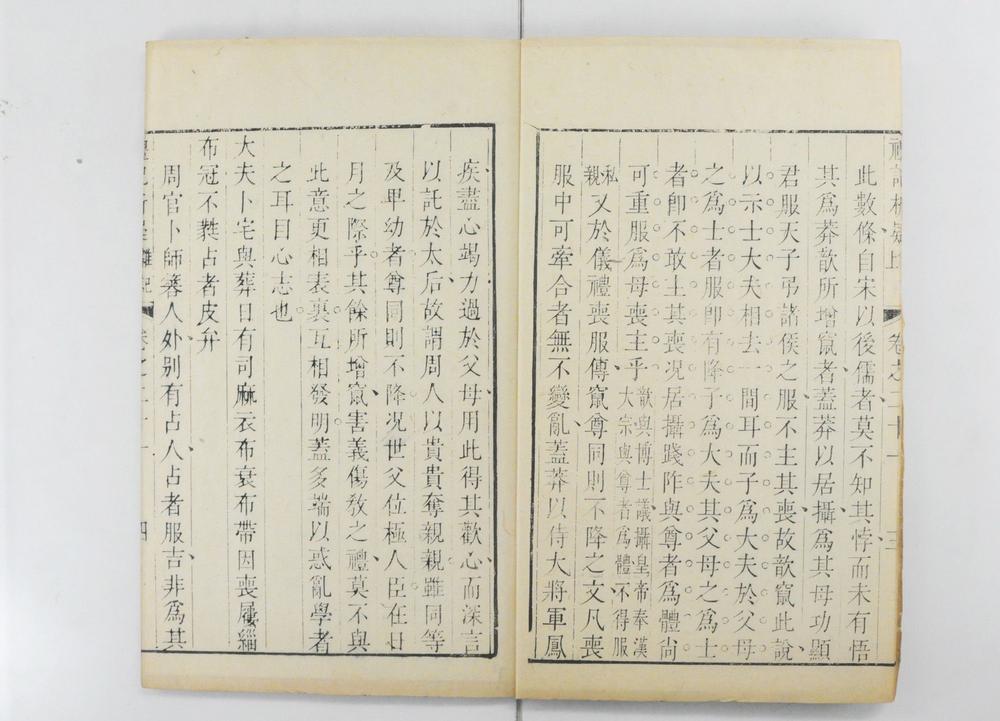 禮記析疑上　卷之二十一　三
此數條自宋以後儒者莫不知其悖而未有悟
其爲莽歆所增竄者蓋莽以居攝爲其母功顯
君服天子弔諸侯之服不主其喪故歆竄此說
以示士大夫相去一間耳而子爲大夫於父母
之爲士者服卽有降子爲大夫其父母之爲士
者卽不敢主其喪况居攝踐阼與尊者爲體尚
可重服爲母喪主乎歆與博士議攝皇帝奉漢大宗與尊者爲體不得服
私親又於儀禮喪服傳竄尊同則不降之文凡喪
服中可牽合者無不變亂蓋莽以侍大將軍鳳
疾盡心竭力過於父母用此得其歡心而深言
以託於太后故謂周人以貴貴奪親親雖同等
及卑幼者尊同則不降况世父位極人臣在日
月之際乎其餘所增竄害義傷敎之禮莫不與
此意更相表裏互相發明蓋多端以惑亂學者
之耳目心志也
大夫卜宅與葬日有司麻衣布衰布帶因喪屨緇
布冠不蕤占者皮弁
周官卜師簭人外别有占人占者服吉非爲其
禮記析疑雜記　卷之二十一　四